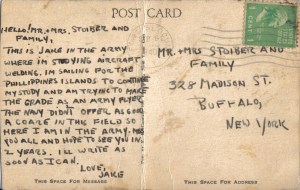 POST CARD
HELLO, MR. & MRS. STOIBER AND
FAMILY,
THIS IS JAKE IN THE ARMY
WHERE IM STUDYING AIRCRAFT
WELDING. IM SAILING FOR THE
PHILLIPPINES ISLANDS TO CONTINUE
MY STUDY AND AM TRYING TO MAKE
THE GRADE AS AN ARMY FLYER
THE NAVY DIDN'T OFFER AS GOOD
A COARE IN THE FIELD SO
HERE I AM IN THE ARMY.
YOU ALL AND HOPE TO SEE YOU IN
2 YEARS. I'LL WRITE AS
SOON AS I CAN.
LOVE,
JAKE
THIS SPACE FOR MESSAGE
1¢
MR. & MRS STOIBER AND
FAMILY
328 MADISON ST.
BUFFALO,
NEW YORK
THIS SPACE FOR ADDRESS